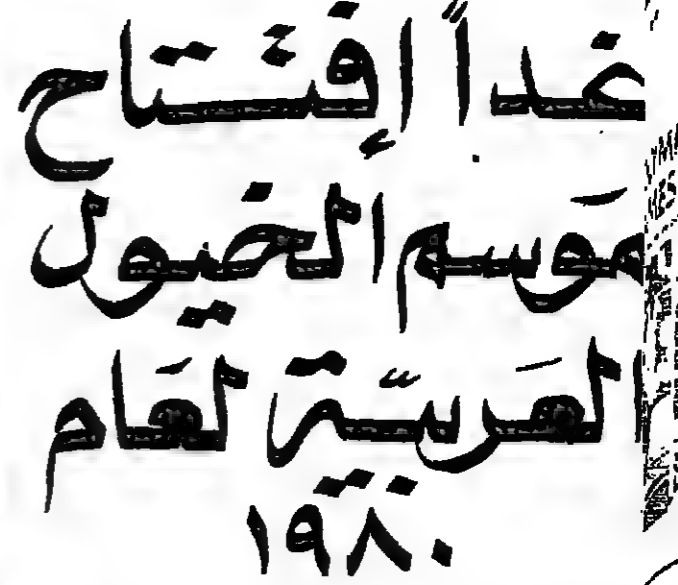 غداً إفتتاح
مَوسم الخيول
العَربيّة لعَام
١٩٨٠